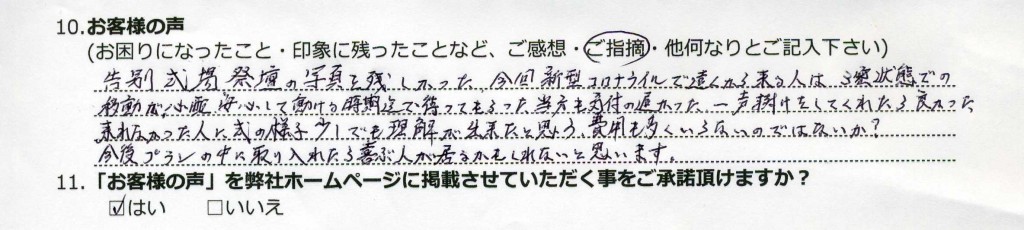 10.お客様の声
(お困りになったこと・印象に残ったことなど、ご感想・ご指摘・他何なりとご記入下さい)
告別式場祭壇の写真を残しかった、今回新型コロナウイルで遠くから来る人は 状態での
移動が心配 安心して動ける時期迄で待ってもらった 当方も受付の遅かった、一声掛けをしてくれたら良かった
来れなかった人に式の様子少しでも理解が出来たと思う、費用も多くいらないのではないか?
今後プランの中に取り入れたら喜ぶ人が居るかもしれないと思います。
11.「お客様の声」を弊社ホームページに掲載させていただく事をご承諾頂けますか?
☑はい □いいえ